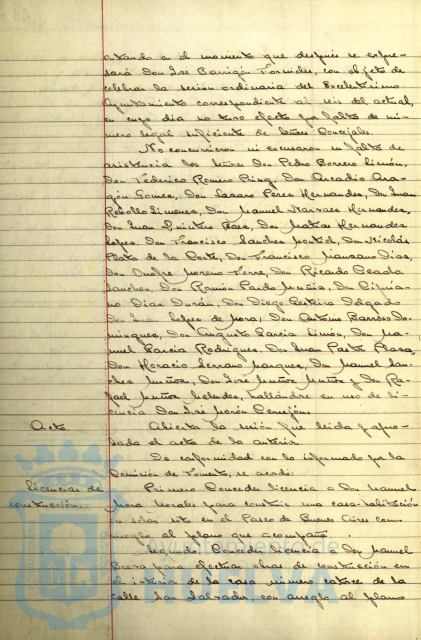 entando en el momento que después se expre-
sará Don José Barrigón Fornieles, con objeto de
celebrar la sesión ordinaria del Excelentísimo
Ayuntamiento correspondiente al seis del actual,
en cuyo día no tuvo efecto por falta de nú-
mero legal suficiente de Señores Concejales.
No concurrieron ni excusaron su falta de
asistencia los Señores Don Pedro Borrero Limón,
Don Federico Romero Don Arcadio Ara-
gón Gomez, Don Lazaro Pérez Hernandez, Don Juan
Rebollo Jimenez, Don Manuel Narvaez Hernandez,
Don Juan Quintero Baez, Don Matias Hernandez
Lopez, Don Francisco Sanchez Don Nicolás
Plata de la Corte, Don Francisco Manzano Diaz,
Don Onofre Moreno Don Ricardo
Sanchez, Don Román Pardo Don Cipria-
no Diaz Durán, Don Diego Delgado
Don Juan Lopez de Mora, Don Antonio Barroso Do-
minguez, Don Augusto Garcia Limón, Don Ma-
nuel Garcia Rodriguez, Don Juan Pastor Plaza,
Don Horacio Serrano Marquez, Don Manuel San-
chez Muñoz, Don José Muñoz Muñoz y Don Ra-
fael Muñoz hallándose en uso de li-
cencia Don José Morón Cerejón.
Acta.
Abierta la sesión fue leida y apro-
bada el acta de la anterior.
De conformidad con lo informado por la
Comisión de Fomento, se acordó:
Licencias de
construcción.
Primero: Conceder licencia a Don Manuel
Mora Morales para construir una casa-habitación
en solar sito en el Paseo de Buenos Aires con
arreglo al plano que acompaña.
Segundo: Conceder licencia a Don Manuel
para efectuar obras de construcción en
el interior de la casa número catorce de la
calle San Salvador, con arreglo al plano